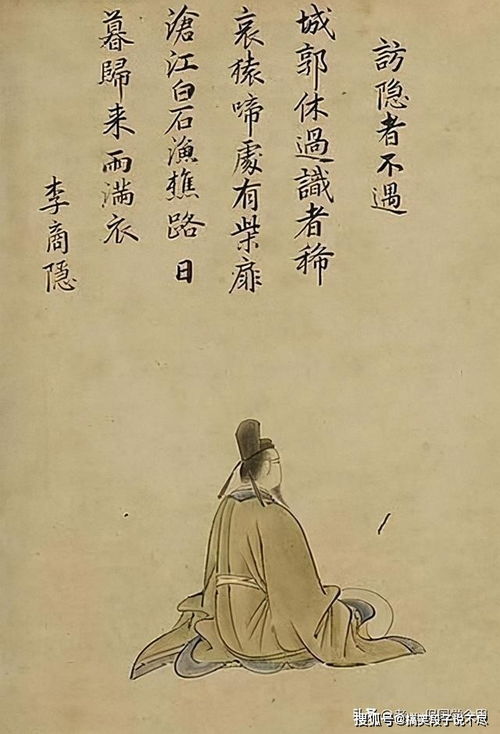 訪隐者不遇
城郭休過識者稀
哀猿啼處有柴扉
滄江白石漁樵路日
暮歸来雨满衣
李商隱
搜狐号@搞笑段子说不尽